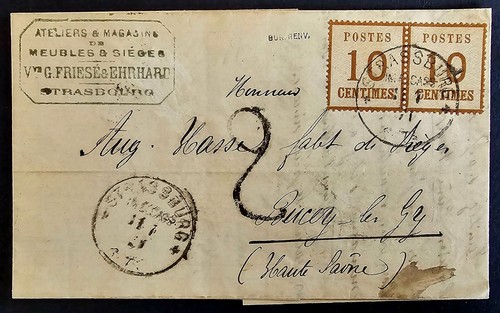 ATELIERS & MAGASINS
DE
MEUBLES & SIÈGES
Vve G. FRIESÉ & EHRHARD
STRASBOURG
BUHLRENV.
POSTES
10
CENTIMES
POSTES
CENTIMES
STRASSBURG
Monsieur
Aug. Hasse fabt de Sièges
2
Bucey-les-Gy
(Haute Saône)
STRASSBURG